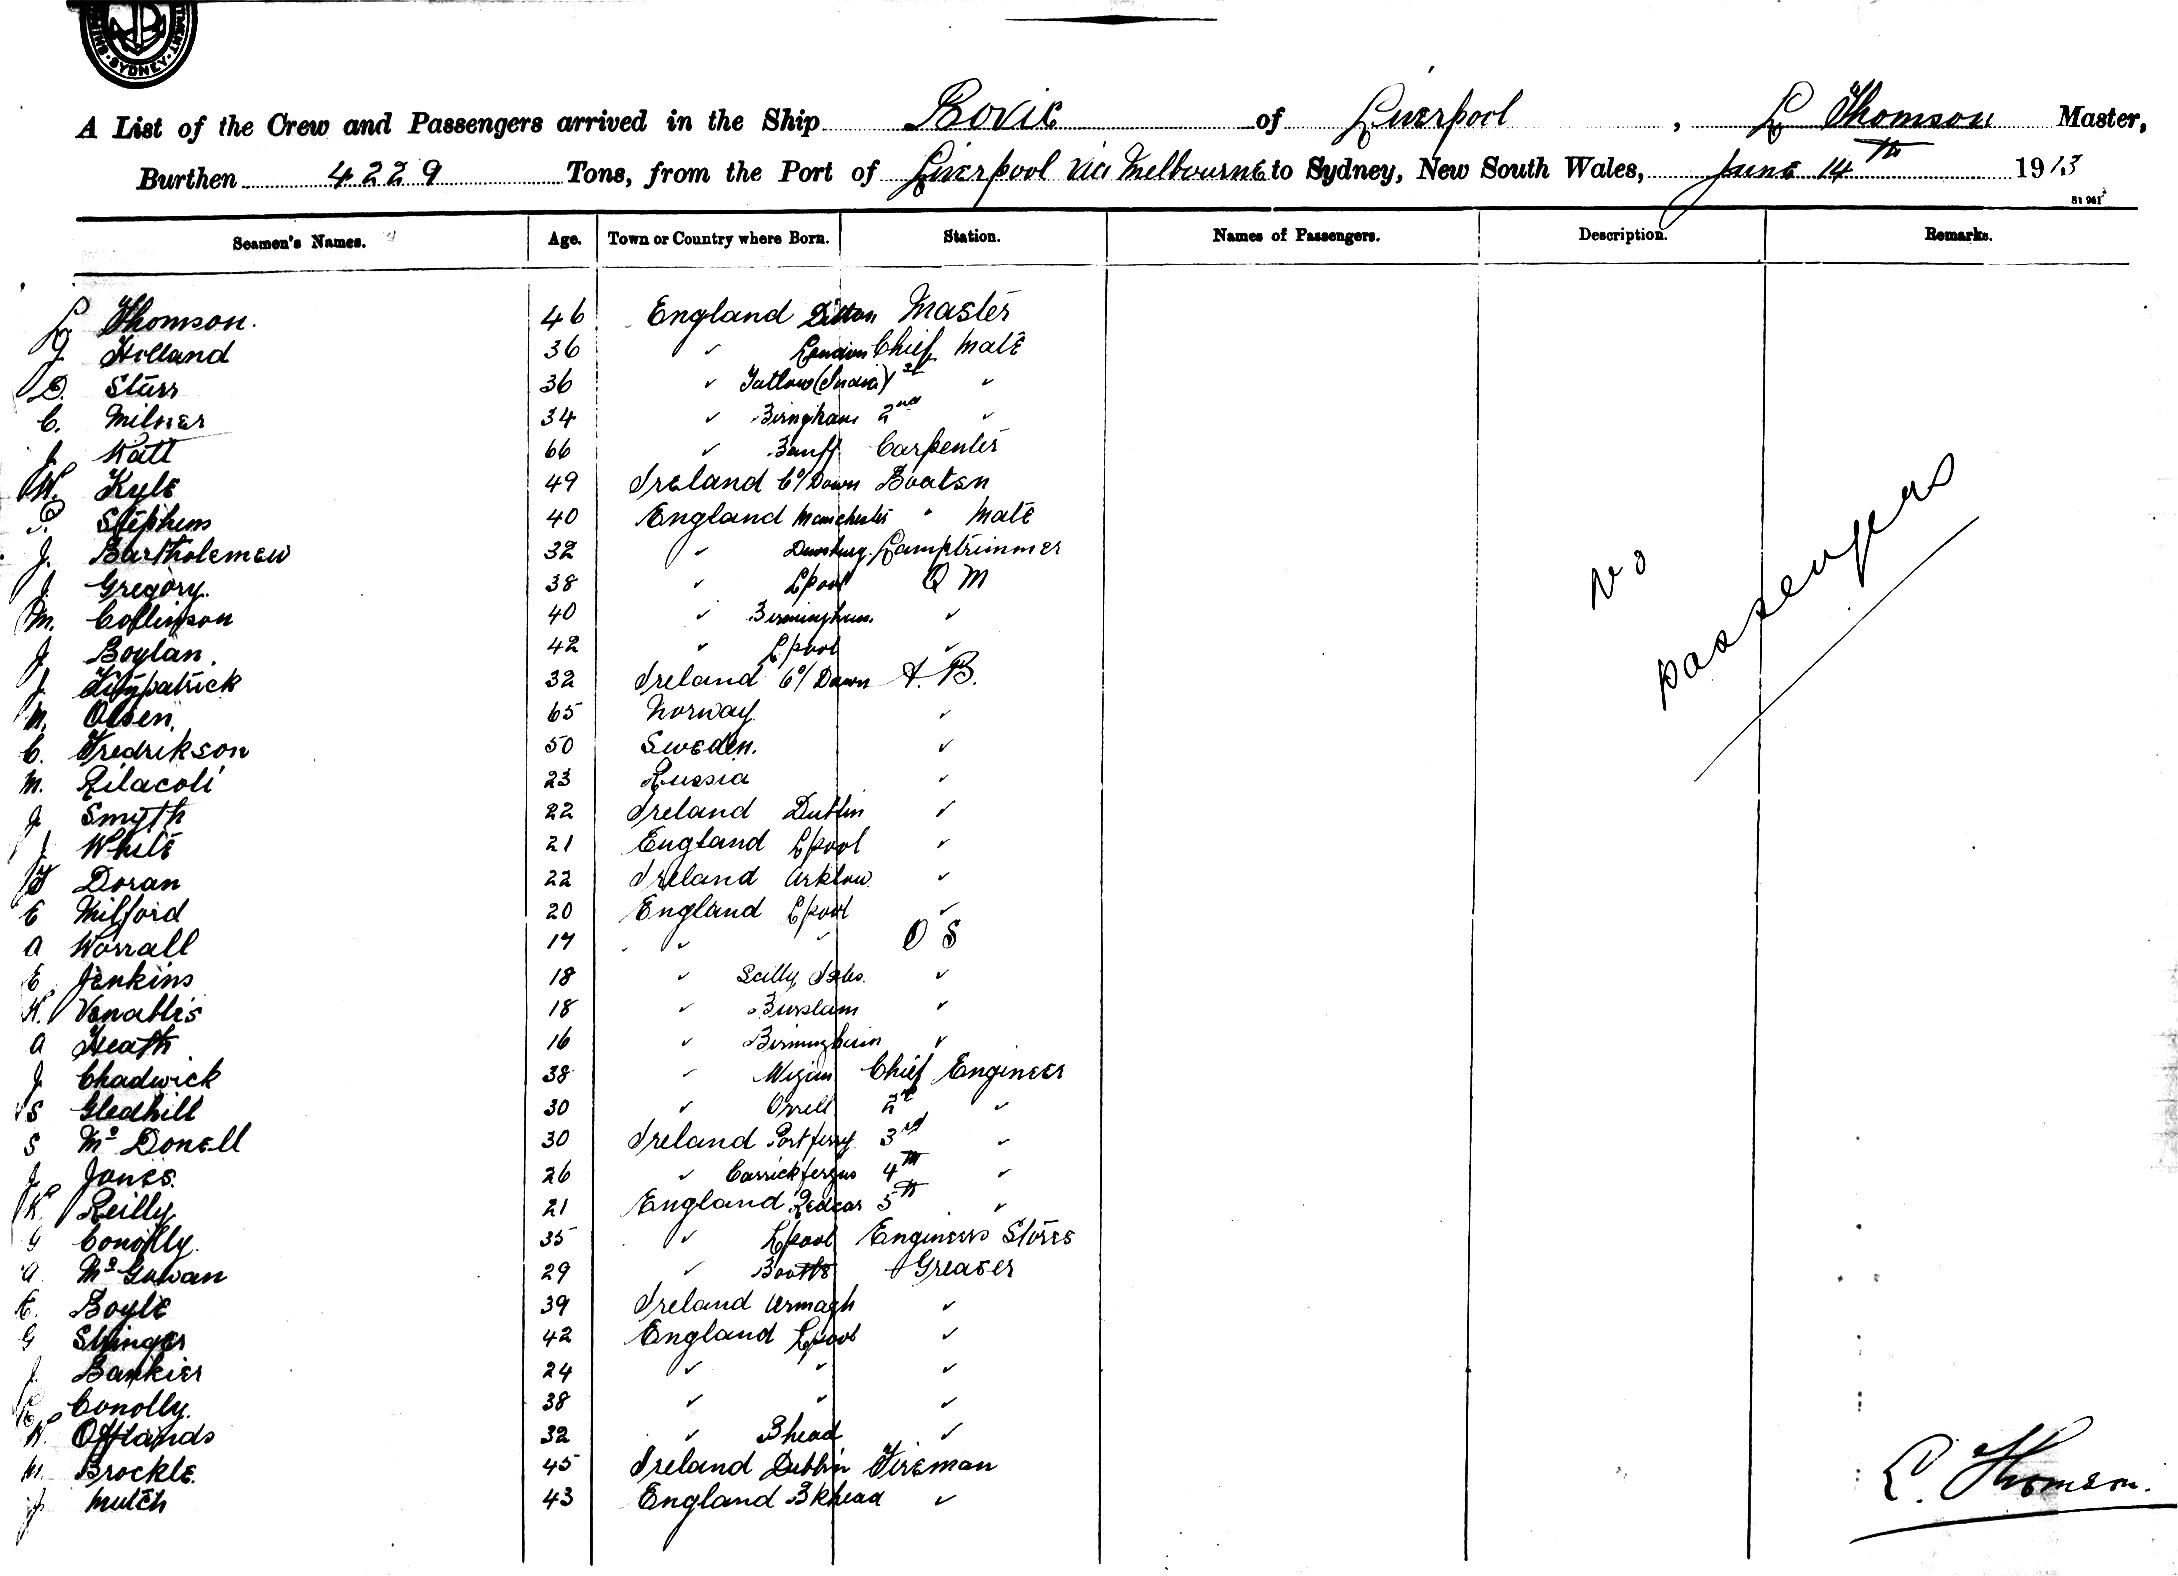 SYDNEY
A List of the Crew and Passengers arrived in the Ship Bovic of Liverpool, L Thomson Master,
Burthen 4229 Tons, from the Port of Liverpool via Melbourne to Sydney, New South Wales, June 14th 1913
Seamen's Names. Age. Town or Country where Born. Station. Names of Passengers. Description. Remarks.
L Thomson. 46 England Ditton Master
J Holland 36 " London Chief Mate
D. Sturs 36 " (India) 1st "
C. Milner 34 " Birngham 2nd "
J. Watt 66 " Banff Carpenter
W. Kyle 49 Ireland Co/ Down Boatsn
Stephens 40 England Manchester " Mate
J. Bartholemew 32 " Dewsbury Lamptrimmer
J Gregory. 38 " Lpool Q M
M. Collinson 40 " Birmingham "
J Boylan. 42 " Lpool "
J. Fitzpatrick 32 Ireland Co/ Down A. B.
M. Olsen. 65 Norway "
C. Fredrikson 50 Sweden. "
M. Rilacoli 23 Russia "
J Smyth 22 Ireland Dublin "
J White 21 England Lpool "
Doran 22 Ireland Arklow "
E Milford 20 England Lpool "
A Worrall 17 " " O S
E Jenkins 18 " Scilly Isles. "
W. Venables 18 " Burslam "
A Heath 16 " Birmingham "
J. Chadwick 38 " Wigan Chief Engineer
S Gledhill 30 " Orrell 2d "
S Mc Donell 30 Ireland Portferry 3rd "
J. Jones. 26 " Carrickfergus 4th "
W. Reilly 21 England Redcar 5th "
G Conolly. 35 " Lpool Engineers Stores
A. McGowan 29 " Bootle Greaser
E. Boyle 39 Ireland Armagh "
G Stringer 42 England Lpool "
J. Bankier 24 " " "
Conolly. 38 " " "
W. Offlands 32 " Bhead "
M. Brockle. 45 Ireland Dublin Fireman
J Mutch 43 England Bkhead "
No
passengers
L. Thomson.